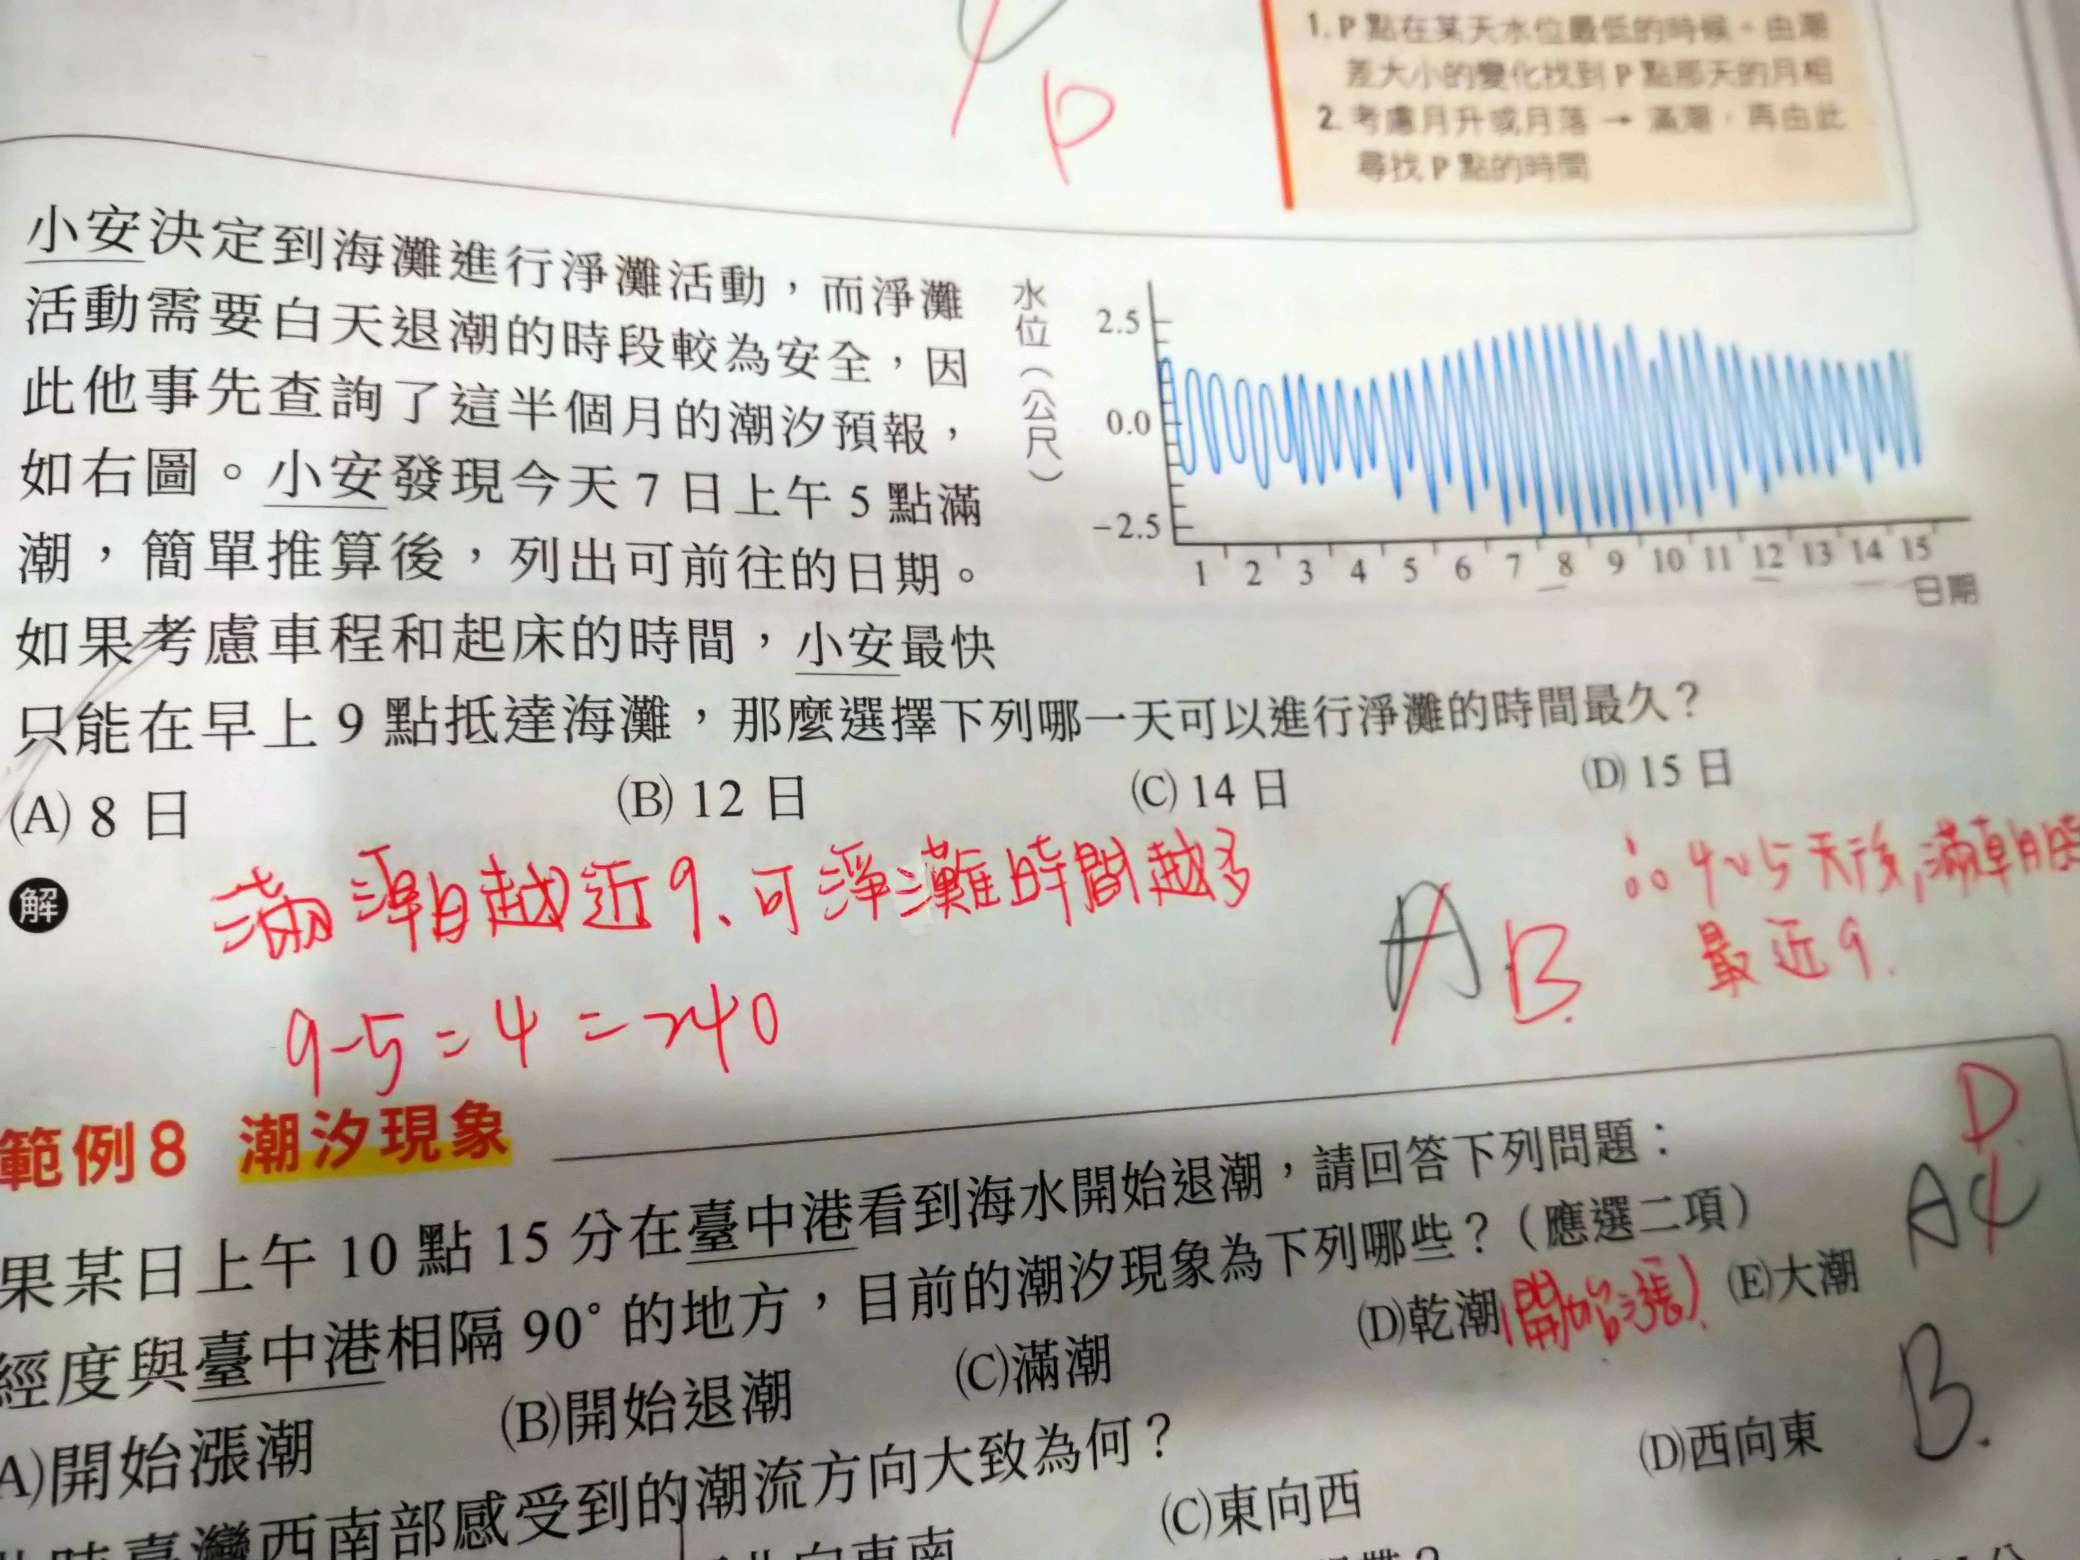 P
1. P 點在某天水位最低的時候。由潮
差大小的變化找到 P 點那天的月相
2. 考慮月升或月落→滿潮,再由此
尋找 P 點的時間
小安決定到海灘進行淨灘活動,而淨灘
活動需要白天退潮的時段較為安全,因
此他事先查詢了這半個月的潮汐預報,
如右圖。小安發現今天 7 日上午 5 點滿
潮,簡單推算後,列出可前往的日期。
如果考慮車程和起床的時間,小安最快
只能在早上 9 點抵達海灘,那麼選擇下列哪一天可以進行淨灘的時間最久?
水位(公尺)
2.5
0.0
-2.5
1 2 3 4 5 6 7 8 9 10 11 12 13 14 15
日期
(A) 8 日 (B) 12 日 (C) 14 日 (D) 15 日
解
滿潮越近9、可淨灘時間越多
9-5=4=240
A B.
∴4~5天後,滿潮時
最近9.
範例8 潮汐現象
果某日上午 10 點 15 分在臺中港看到海水開始退潮,請回答下列問題:
經度與臺中港相隔 90° 的地方,目前的潮汐現象為下列哪些?(應選二項)
A)開始漲潮 (B)開始退潮 (C)滿潮 (D)乾潮(開始漲) (E)大潮
D.
AC
臺灣西南部感受到的潮流方向大致為何?
B.
(C)東向西 (D)西向東